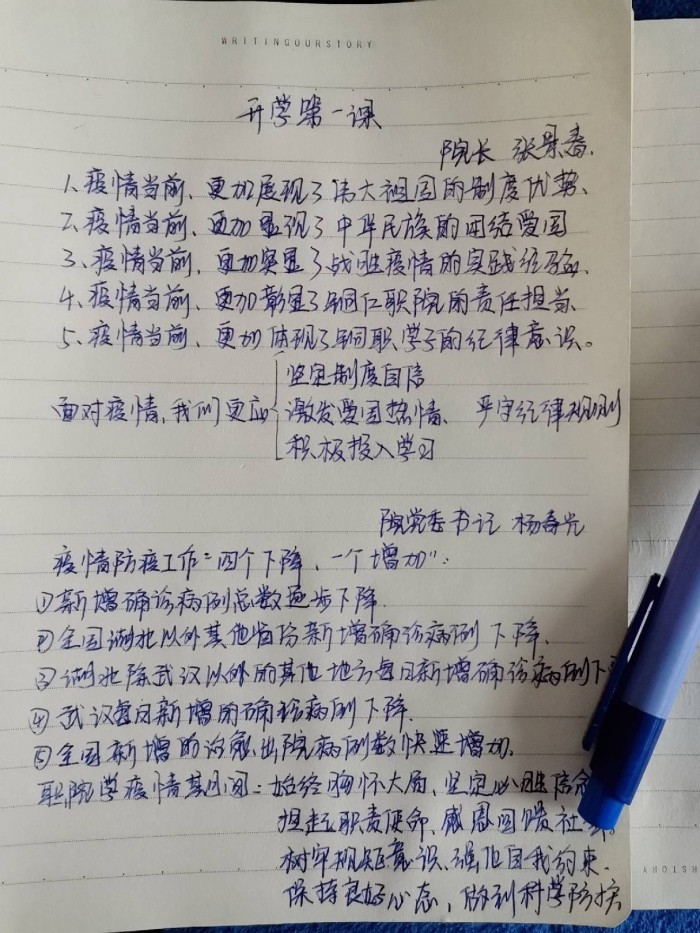 WRITINGOURSTORY
开学第一课
院长 张景春.
1、疫情当前，更加展现了伟大祖国的制度优势、
2、疫情当前，更加显现了中华民族的团结爱国
3、疫情当前，更加突显了战胜疫情的实践经验、
4、疫情当前，更加彰显了铜仁职院的责任担当、
5、疫情当前，更加体现了铜职学子的纪律意识。
坚定制度自信
面对疫情，我们更应 激发爱国热情、 严守纪律规则
积极投入学习
院党委书记 杨春光
疫情防疫工作"四个下降，一个增加"：
①新增确诊病例总数逐步下降.
②全国湖北以外其他省份新增确诊病例下降.
③湖北除武汉以外的其他地方每日新增确诊病例下
④武汉每日新增的确诊病例下降.
⑤全国新增的治愈出院病例数快速增加.
职院学疫情其间：始终胸怀大局，坚定必胜信念
担起职责使命、感恩回馈社
树牢规矩意识、强化自我约束.
保持良好心态，做到科学防控